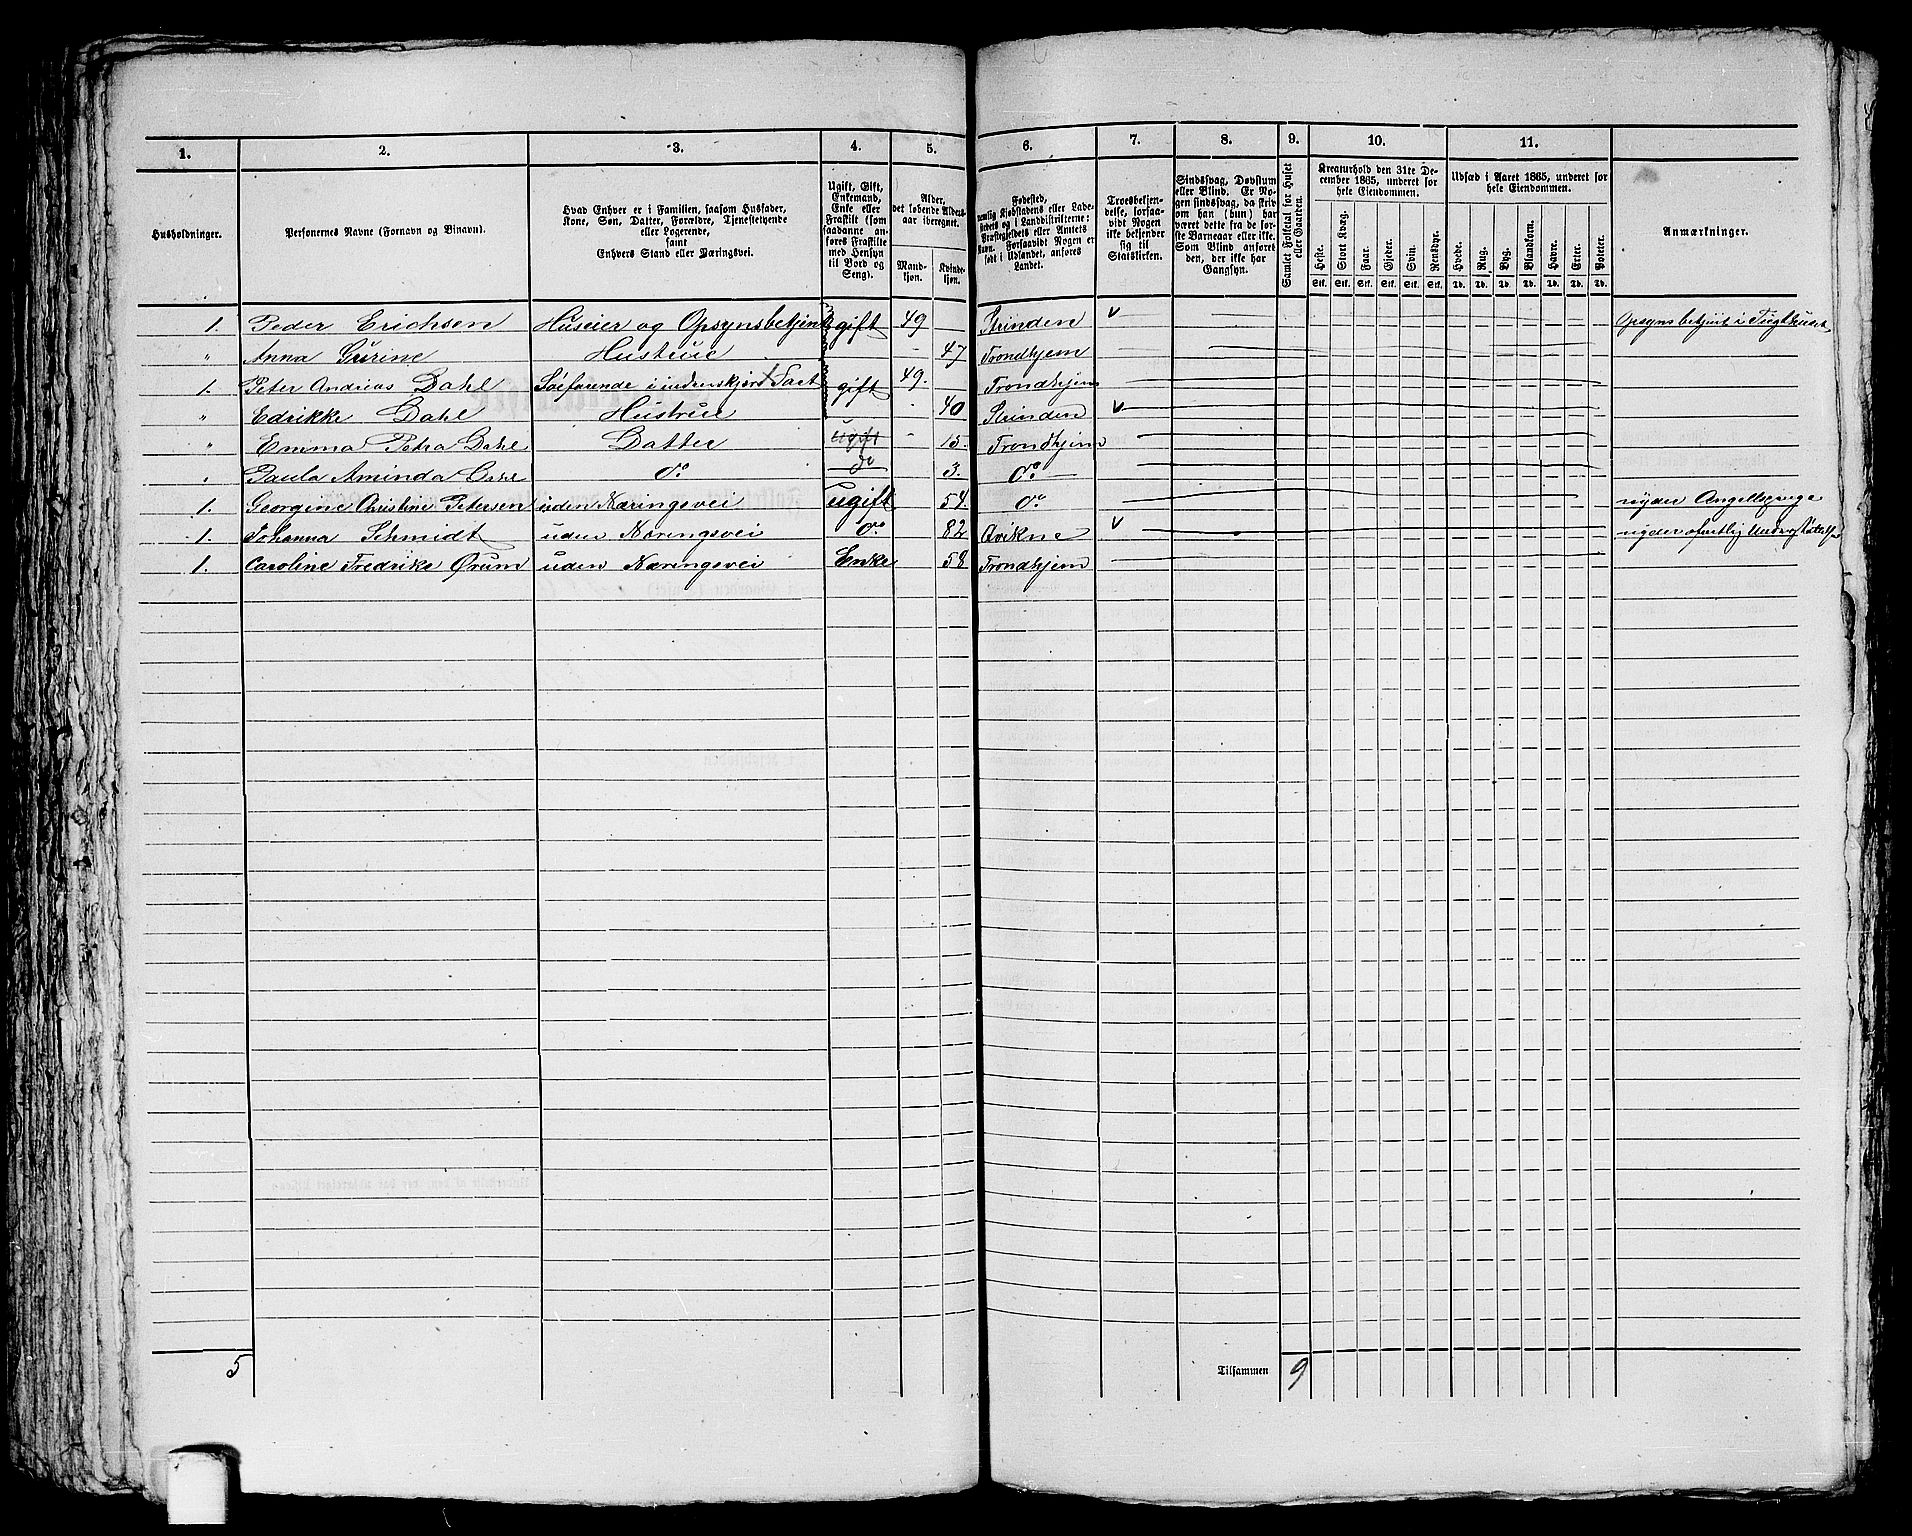 1. 2. 3. 4. 5. 6. 7. 8. 9. 10. 11.
Husholdninger.
Personernes Navne (Fornavn og Binavn).
Hvad Enhver er i Familien, saasom Husfader,
Kone, Søn, Datter, Forældre, Tjenestetyende
eller Logerende,
samt
Enhvers Stand eller Næringsvei.
Ugift, Gift,
Enkemand,
Enke eller
Fraskilt (som
saadanne an-
føres Fraskilte
med Hensyn
til Bord og
Seng).
Alder,
det løbende Alders-
aar iberegnet.
Mand-
kjøn.
Kvinde-
kjøn.
Fødested,
nemlig Kjøbstadens eller Lade-
stedets og i Landdistrikterne:
Præstegjeldets eller Amtets
Navn. Forsaavidt Nogen er
født i Udlandet, anføres
Landet.
Troesbekjen-
delse, forsaa-
vidt Nogen
ikke bekjender
sig til
Statskirken.
Sindssvag, Døvstum
eller Blind. Er No-
gen sindssvag, da skriv
om han (hun) har
været dette fra de før-
ste Barneaar eller ikke.
Som Blind anføret
den, der ikke har
Gangsyn.
Samlet Folketal for Huset
eller Gaarden.
Kreaturhold den 31te De-
cember 1865, underet for
hele Eiendommen.
Heste. Stort Kvæg. Faar. Gjeder. Svin. Rensdyr.
Stk. Stk. Stk. Stk. Stk. Stk.
Udsæd i Aaret 1865, underet for
hele Eiendommen.
Hvede. Rug. Byg. Blandkorn. Havre. Erter. Poteter.
Td. Td. Td. Td. Td. Td. Td.
Anmærkninger.
1. Peder Erichsen Huseier og Opsynsbetjent gift 49 Strinden Opsynsbetjent i Tugthuset
" Anna Gurine Hustrue 47 Trondhjem
1. Peter Andreas Dahl Søefarende i indenskjærs Fart gift 49. Trondhjem
" Edrikke Dahl Hustrue 40 Strinden
" Emma Petra Dahl Datter ugift 15. Trondhjem
" Paula Aminda do do 3. do
1. Georgine Christine Petersen uden Næringsvei ugift 54. do nyder
1. Johanna Schmidt uden Næringsvei do 82 Qvikne nyder ofentlig Understøttelse
1. Caroline Fredrike Ørum uden Næringsvei Enke 58 Trondhjem
5 Tilsammen 9